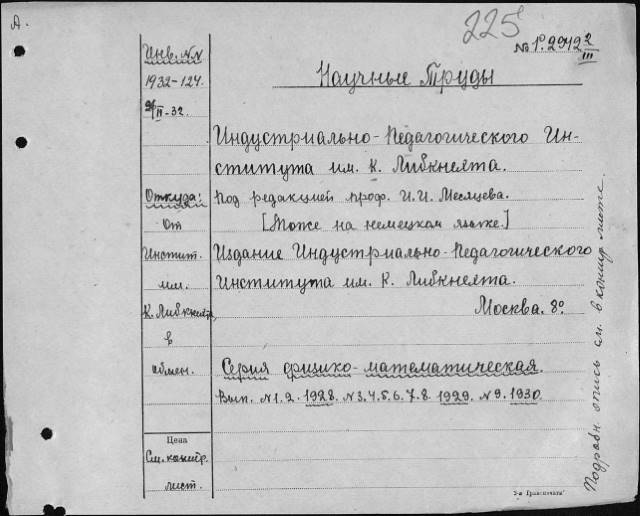 А.
225
№ 1º.2942 2/III
Инв. №№
1932-124.
Научные Труды
Индустриально-Педагогического Ин-
ститута им. К. Либкнехта.
Откуда:
Под редакцией проф. И.И. Месяцева.
От
[Тоже на немецком языке.]
Инстит.
Издание Индустриально-Педагогического
им.
Института им. К. Либкнехта.
К. Либкнехта
Москва. 8º
в
обмен.
Серия физико-математическая.
Вып. №1.2.1928. №3.4.5.6.7.8 1929. №9.1930.
Цена
См. канцр.
лист.
Подробн. опись см. в канцр. листе.